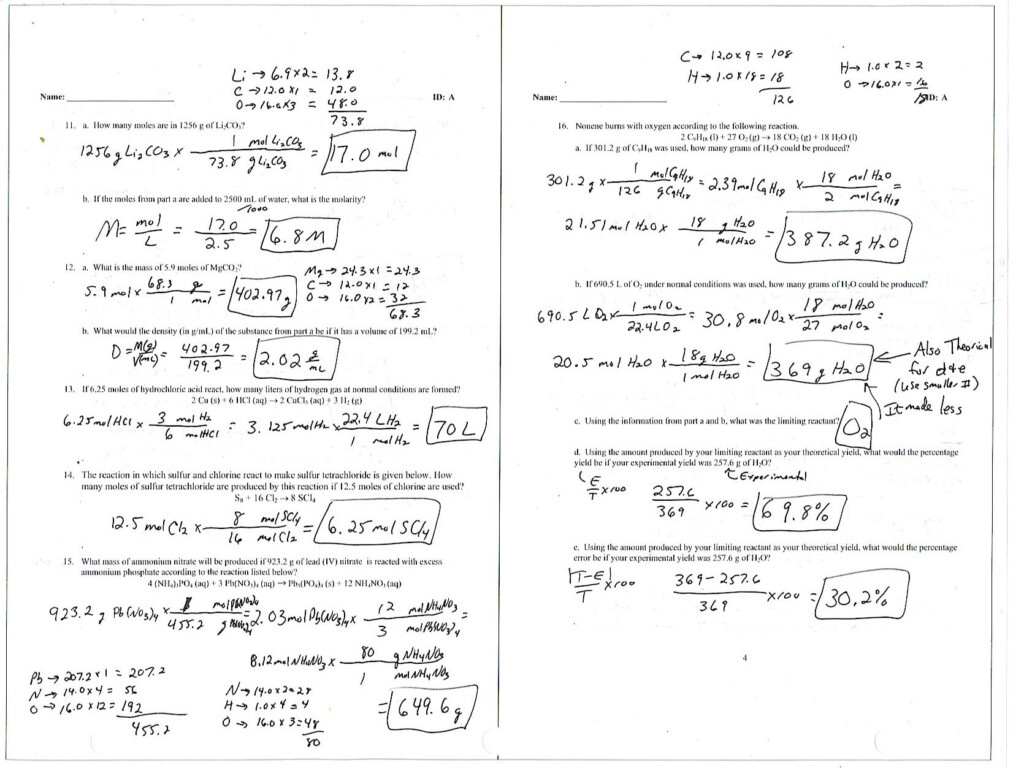 Li → 6.9×2 = 13.8
C → 12.0 ×1 = 12.0
O → 16.0×3 = 48.0
73.8
Name: ID: A
11. a. How many moles are in 1256 g of Li₂CO₃?
1256 g Li₂CO₃ × 1 mol Li₂CO₃ / 73.8 g Li₂CO₃ = 17.0 mol
b. If the moles from part a are added to 2500 mL of water, what is the molarity?
1000
M = mol / L = 17.0 / 2.5 = 6.8 M
12. a. What is the mass of 5.9 moles of MgCO₂?
Mg → 24.3 ×1 = 24.3
C → 12.0×1 = 12
O → 16.0×2 = 32
68.3
5.9 mol × 68.3 g / 1 mol = 402.97 g
b. What would the density (in g/mL) of the substance from part a be if it has a volume of 199.2 mL?
D = M(g) / V(mL) = 402.97 / 199.2 = 2.02 g / mL
13. If 6.25 moles of hydrochloric acid react, how many liters of hydrogen gas at normal conditions are formed?
2 Cu (s) + 6 HCl (aq) → 2 CuCl₃ (aq) + 3 H₂ (g)
6.25 mol HCl × 3 mol H₂ / 6 mol HCl = 3.125 mol H₂ × 22.4 L H₂ / 1 mol H₂ = 70 L
14. The reaction in which sulfur and chlorine react to make sulfur tetrachloride is given below. How
many moles of sulfur tetrachloride are produced by this reaction if 12.5 moles of chlorine are used?
S₈ + 16 Cl₂ → 8 SCl₄
12.5 mol Cl₂ × 8 mol SCl₄ / 16 mol Cl₂ = 6.25 mol SCl₄
15. What mass of ammonium nitrate will be produced if 923.2 g of lead (IV) nitrate is reacted with excess
ammonium phosphate according to the reaction listed below?
4 (NH₄)₃PO₄ (aq) + 3 Pb(NO₃)₄ (aq) → Pb₃(PO₄)₄ (s) + 12 NH₄NO₃ (aq)
923.2 g Pb(NO₃)₄ × 1 mol Pb(NO₃)₄ / 455.2 g Pb(NO₃)₄ = 2.03 mol Pb(NO₃)₄ × 12 mol NH₄NO₃ / 3 mol Pb(NO₃)₄ =
8.12 mol NH₄NO₃ × 80 g NH₄NO₃ / 1 mol NH₄NO₃
= 649.6 g
Pb → 207.2 ×1 = 207.2
N → 14.0×4 = 56
O → 16.0 ×12 = 192
455.2
N → 14.0×2=28
H → 1.0×4 = 4
O → 16.0 ×3=48
80
C → 12.0×9 = 108
H → 1.0×18 = 18
126
H → 1.0×2=2
O → 16.0×1 = 16
18
Name: ID: A
16. Nonene burns with oxygen according to the following reaction.
2 C₉H₁₈ (l) + 27 O₂ (g) → 18 CO₂ (g) + 18 H₂O (l)
a. If 301.2 g of C₉H₁₈ was used, how many grams of H₂O could be produced?
301.2 g × 1 mol C₉H₁₈ / 126 g C₉H₁₈ = 2.39 mol C₉H₁₈ × 18 mol H₂O / 2 mol C₉H₁₈ =
21.51 mol H₂O × 18 g H₂O / 1 mol H₂O = 387.2 g H₂O
b. If 690.5 L of O₂ under normal conditions was used, how many grams of H₂O could be produced?
690.5 L O₂ × 1 mol O₂ / 22.4 L O₂ = 30.8 mol O₂ × 18 mol H₂O / 27 mol O₂ =
20.5 mol H₂O × 18 g H₂O / 1 mol H₂O = 369 g H₂O
Also Theorical
for d+e
(use smaller #)
It made less
c. Using the information from part a and b, what was the limiting reactant? O₂
d. Using the amount produced by your limiting reactant as your theoretical yield, what would the percentage
yield be if your experimental yield was 257.6 g of H₂O?
Experimental
E / T ×100 257.6 / 369 ×100 = 69.8%
e. Using the amount produced by your limiting reactant as your theoretical yield, what would the percentage
error be if your experimental yield was 257.6 g of H₂O?
|T-E| / T ×100 369-257.6 / 369 ×100 = 30.2%
4